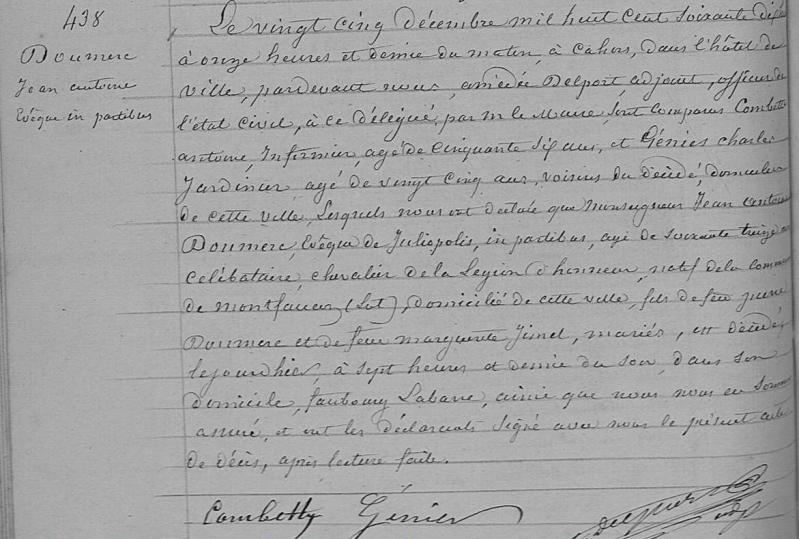 438
Doumerc
Jean antoine
Evêque in partibus
Le vingt cinq décembre mil huit cent soixante dix
à onze heures et demie du matin, à Cahors, dans l'hôtel de
ville, pardevant nous, amédée Delport, adjoint, officier de
l'état civil, à ce délégué, par m le Maire, sont comparus Combette
antoine, Infirmier, agé de Cinquante Six ans, et Génies charles
Jardinier, agé de vingt cinq ans, voisins du décédé, domiciliés
de cette ville, Lesquels nous ont déclaré que monseigneur Jean antoine
Doumerc, Evêque de Juliopolis, in partibus, agé de soixante treize ans
celibataire, chevalier de la Légion d'honneur, natif de la commune
de montfaucon (Lot), domicilié de cette ville, fils de feu pierre
Doumerc et de feue marguerite, mariés, est décédé,
lejourdhier, à sept heures et demie du soir, dans son
domicile, faubourg Labarre, ainsi que nous nous en sommes
assuré, et ont les déclarants signé avec nous le présent acte
de décès, après lecture faite.
Combette Génies